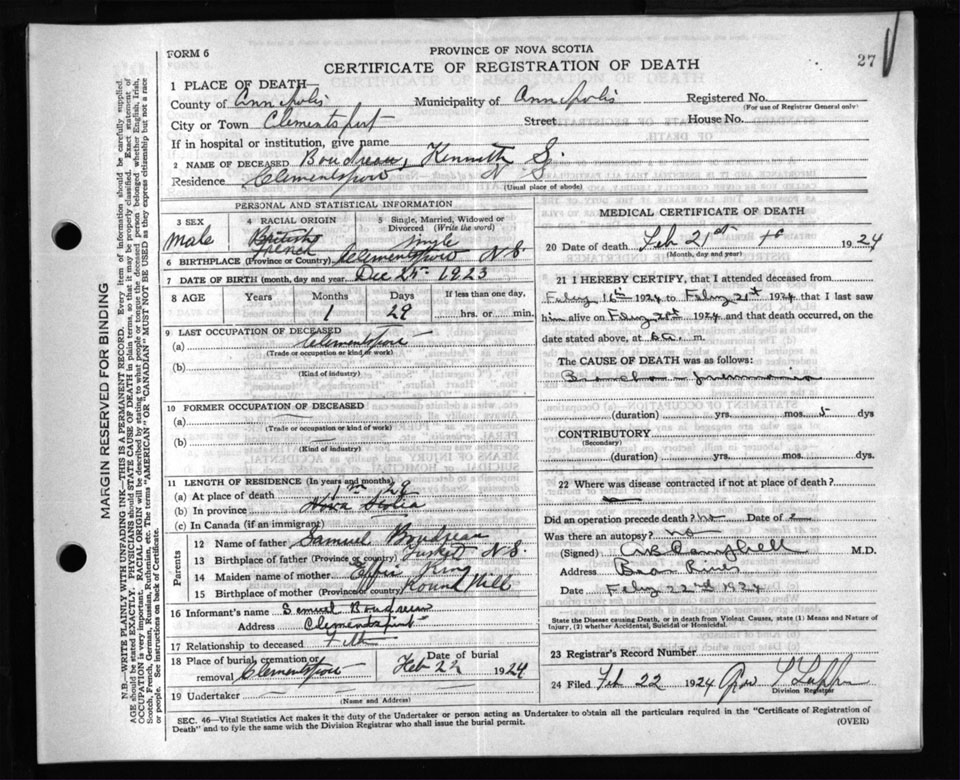 FORM 6
PROVINCE OF NOVA SCOTIA
27
CERTIFICATE OF REGISTRATION OF DEATH
1 PLACE OF DEATH
County of Annapolis Municipality of Annapolis Registered No.
(For use of Registrar General only)
City or Town Clementsport Street House No.
If in hospital or institution, give name
2 NAME OF DECEASED Boudreau, Kenneth S.
Residence Clementsport N S
(Usual place of abode)
PERSONAL AND STATISTICAL INFORMATION
3 SEX 4 RACIAL ORIGIN 5 Single, Married, Widowed or Divorced (Write the word)
Male British French Single
6 BIRTHPLACE (Province or Country) Clementsport N S
7 DATE OF BIRTH (month, day and year) Dec 25th 1923
8 AGE Years Months Days If less than one day,
1 29 hrs. or min.
9 LAST OCCUPATION OF DECEASED
(a) Clementsport
(Trade or occupation or kind or work)
(b)
(Kind of industry)
10 FORMER OCCUPATION OF DECEASED
(a)
(Trade or occupation or kind of work)
(b)
(Kind of industry)
11 LENGTH OF RESIDENCE (In years and months)
(a) At place of death 1 m 29
(b) In province Nova Scotia
(c) In Canada (if an immigrant)
Parents
12 Name of father Samuel Boudreau
13 Birthplace of father (Province or country) Tusket N S.
14 Maiden name of mother Effie King
15 Birthplace of mother (Province or country) Round Hill
16 Informant's name Samuel Boudreau
Address Clementsport
17 Relationship to deceased
18 Place of burial cremation or removal Clementsport Date of burial Feb 22 1924
19 Undertaker
(Name and Address)
MEDICAL CERTIFICATE OF DEATH
20 Date of death Feb 21st 1924
(Month, day and year)
21 I HEREBY CERTIFY, that I attended deceased from
Febuy 16th 1924 to Febuy 21st 1924 that I last saw
him alive on Febuy 21st 1924 and that death occurred, on the
date stated above, at 6 a. m.
The CAUSE OF DEATH was as follows:
Broncho-pneumonia
(duration) yrs. mos. 5 dys
CONTRIBUTORY
(Secondary)
(duration) yrs. mos. dys.
22 Where was disease contracted if not at place of death?
Did an operation precede death? no Date of
Was there an autopsy? no
(Signed) Campbell M.D.
Address Bear River
Date Febuy 22nd 1924
State the Disease causing Death, or in death from Violent Causes, state (1) Means and Nature of
Injury, (2) whether Accidental, Suicidal or Homicidal.
23 Registrar's Record Number
24 Filed Feb 22 1924
Division Registrar
SEC. 46—Vital Statistics Act makes it the duty of the Undertaker or person acting as Undertaker to obtain all the particulars required in the "Certificate of Registration of
Death" and to fyle the same with the Division Registrar who shall issue the burial permit.
(OVER)
MARGIN RESERVED FOR BINDING
N.B.—WRITE PLAINLY WITH UNFADING INK—THIS IS A PERMANENT RECORD. Every item of information should be carefully supplied.
AGE should be stated EXACTLY. PHYSICIANS should STATE CAUSE OF DEATH in plain terms, so that it may be properly classified. Exact statement of
OCCUPATION is very important. RACIAL ORIGIN will be described by stating to what people or tongue the deceased person belonged whether English, Irish,
Scotch, French, German, Russian, Ruthenian, etc. The terms "AMERICAN" OR "CANADIAN" MUST NOT BE USED as they express citizenship but not a race
or people. See instructions on back of Certificate.